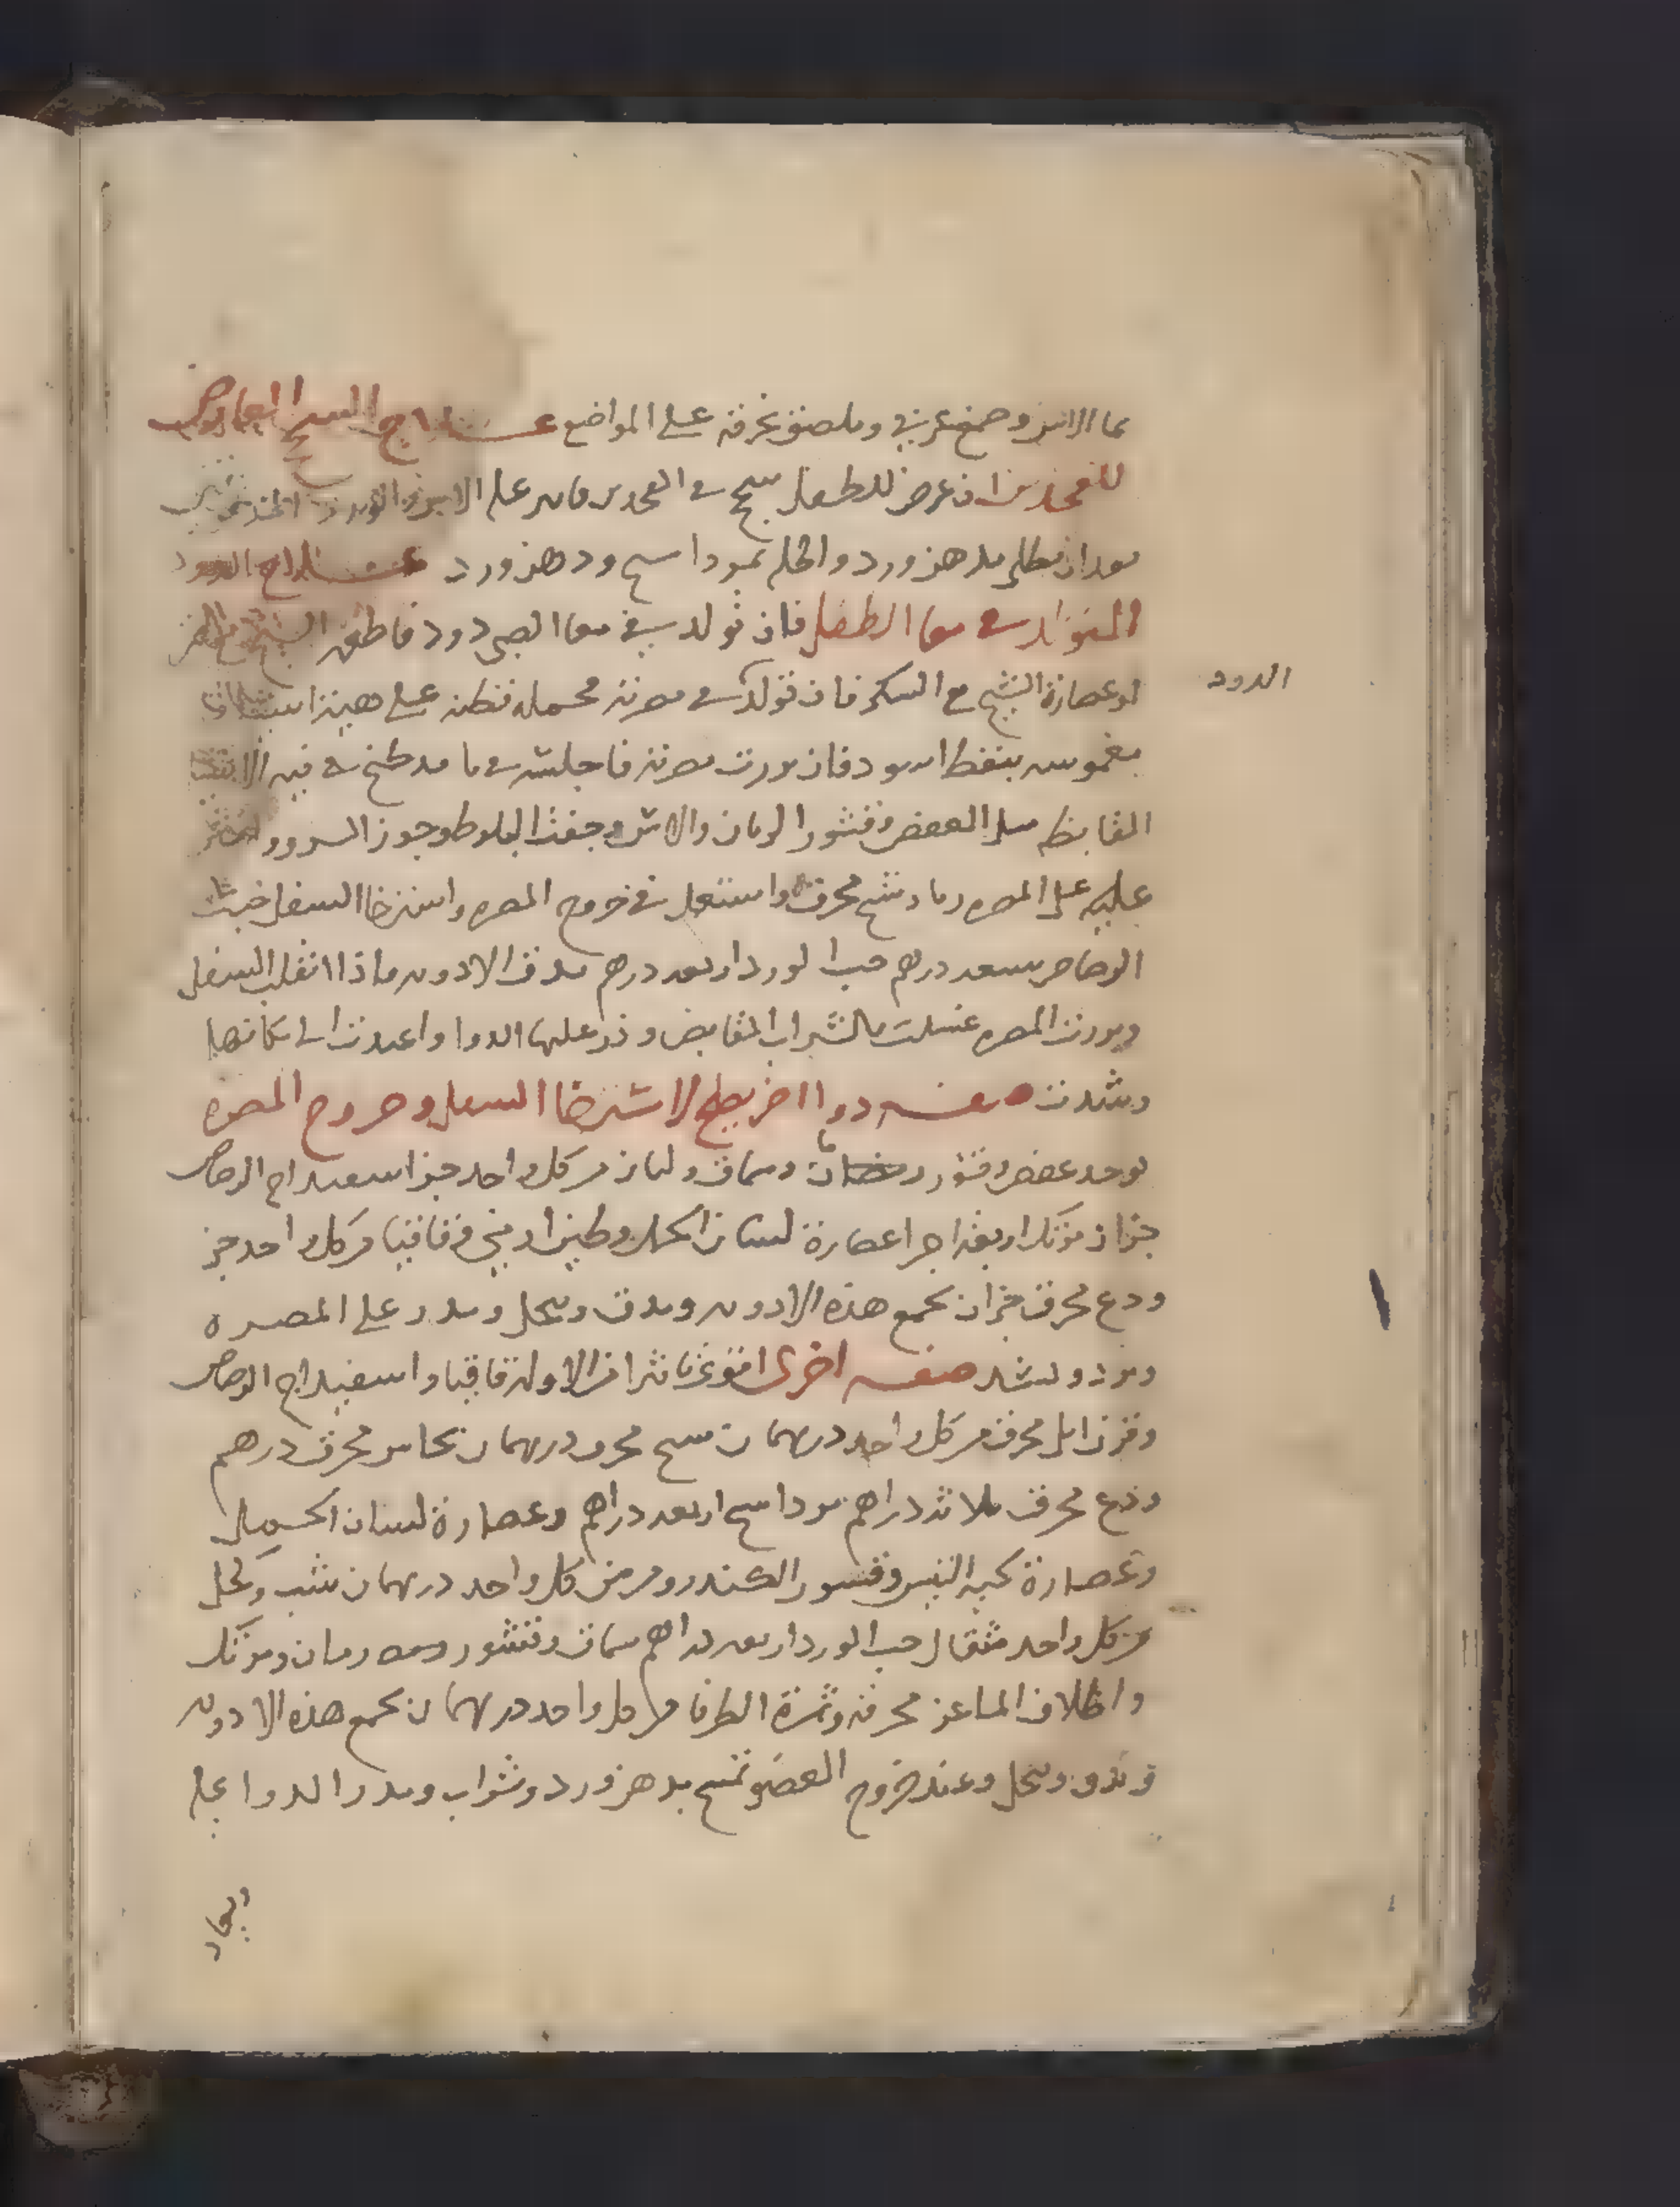 بما الاس وصمغ عربي ويلصق بخرقه على المواضع عـــلاج السحج العارض
للفخذين ان عرض للطفل سحج في الفخدين فانثر عليه الاس والورد
بعد ان تطلى بدهن ورد والحله بمرداسنج ودهن ورد عـــلاج الدود
المتولد في معا الطفل فان تولد في معا الصبي دود فاطعمه الشيح
او عصارة الشيح مع السكر فان تولد في مصرته فحمله قطنه على هيئة
مغموسه بنفط اسود فان برزت مصرته فاجلسه في ما قد طبخ فيه الاشيا
القابضه مثل العفص وقشور الرمان والاس وجفت البلوط وجوز السرو وانثر
عليه على المصره رماد شيح محرق واستعمل في خروج المصره واسترخا السفل خبث
الرصاص سعد درهم حب الورد اربعه درهم يدق الادويه فاذا انقلب السفل
وبرزت المصره غسلت بالشراب القابض وذر عليها الدوا واعيدت الى مكانها
وشدت صفـــه دوا اخر يصلح لاسترخا السفل وخروج المصره
يوخد عفص وقشور رمان وسماق ولبان من كل واحد جزا سفيداج الرصاص
جزان مرتك اربعة اجزا عصارة لسان الحمل وطين ارمني وقاقيا من كل واحد جز
وودع محرق جزان تجمع هذه الادويه وتدق وتنخل ويذر على المصره
وترد وتشد صفـــه اخرى اقوى تاثيرا من الاوله قاقيا واسفيداج الرصاص
وقرن ايل محرق من كل واحد درهمان شيح محرق درهمان نحاس محرق درهم
وودع محرق ثلاثة دراهم مرداسنج اربعه دراهم وعصارة لسان الحمل
وعصارة لحية التيس وقشور الكندر ومر من كل واحد درهمان شب وكحل
من كل واحد مثقال حب الورد اربعه دراهم سماق وقشور رمان ومرتك
واظلاف الماعز محرقه وثمرة الطرفا من كل واحد درهمان تجمع هذه الادويه
وتدق وتنخل وعند خروج العضو تمسح بدهن ورد وشراب ويذر الدوا عليه
الدود